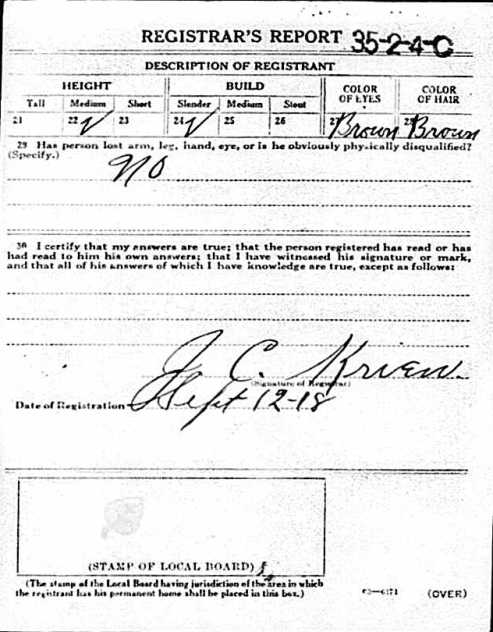 REGISTRAR'S REPORT 35-2-4-C
DESCRIPTION OF REGISTRANT
HEIGHT BUILD COLOR OF EYES COLOR OF HAIR
Tall Medium Short Slender Medium Stout
21 22 ✓ 23 24 ✓ 25 26 27 Brown 28 Brown
29 Has person lost arm, leg, hand, eye, or is he obviously physically disqualified?
(Specify.)
No
30 I certify that my answers are true; that the person registered has read or has
had read to him his own answers; that I have witnessed his signature or mark,
and that all of his answers of which I have knowledge are true, except as follows:
J. C.
(Signature of Registrar)
Date of Registration Sept 12-18
(STAMP OF LOCAL BOARD)
(The stamp of the Local Board having jurisdiction of the area in which
the registrant has his permanent home shall be placed in this box.)
(OVER)